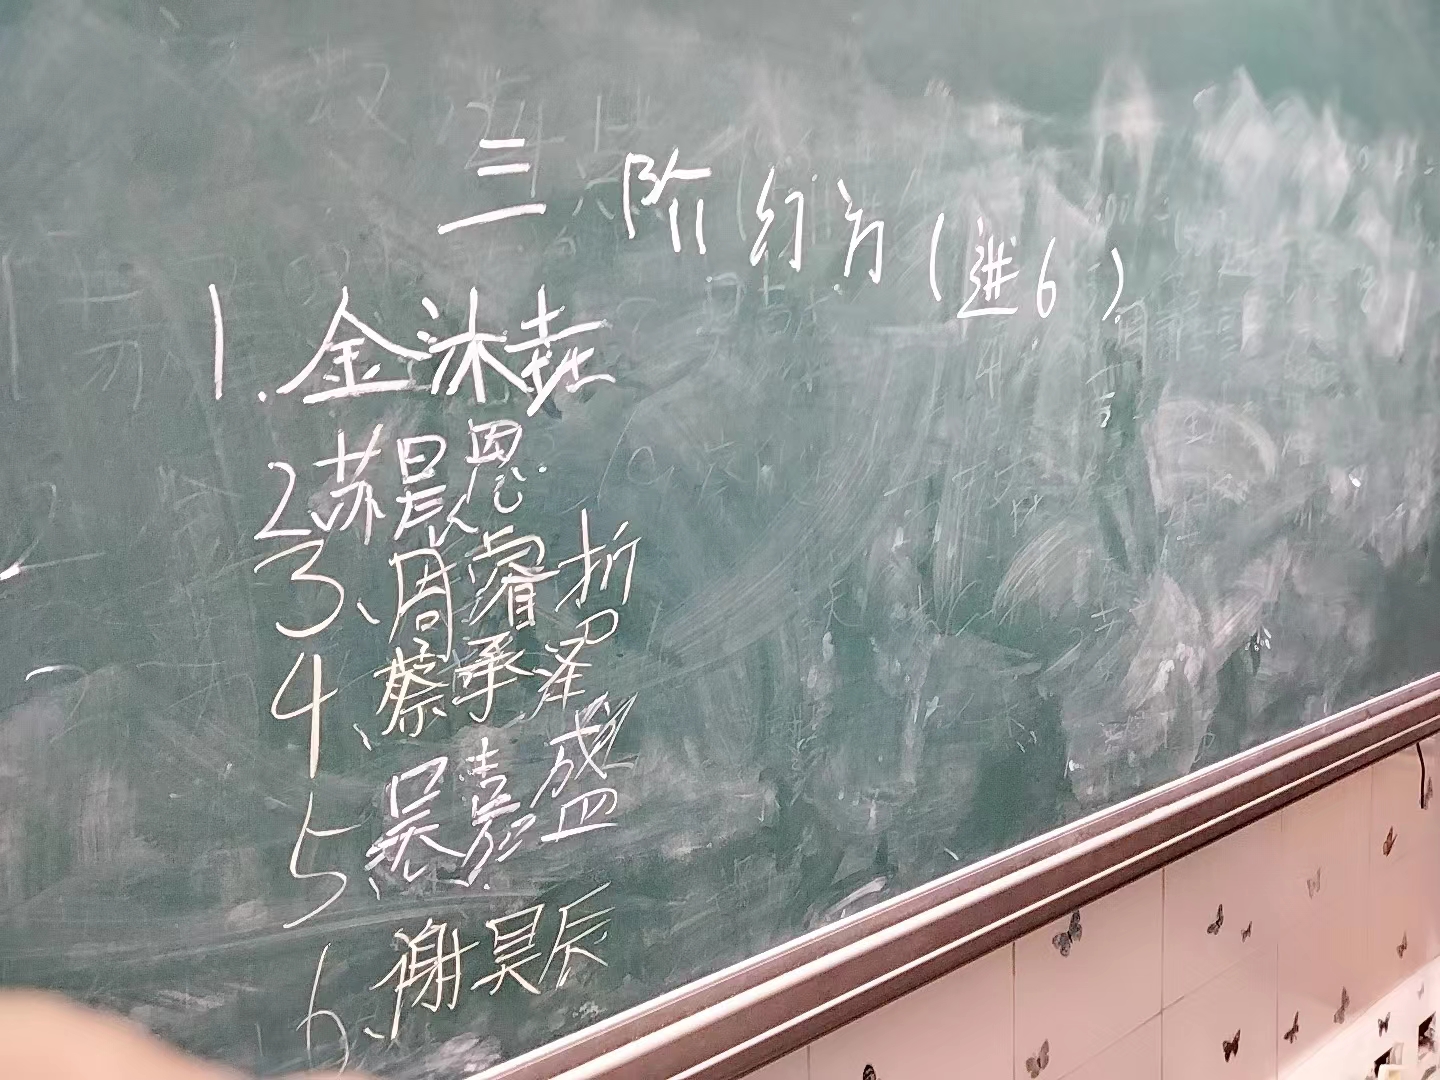 三阶幻方(进6)
1.金沐垚
2、苏晨恩
3、周睿哲
4、蔡承泽
5、吴嘉盛
6、谢昊辰